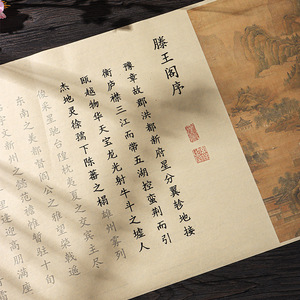 滕王阁序
豫章故郡洪都新府星分翼轸地接
衡庐襟三江而带五湖控蛮荆而引
瓯越物华天宝龙光射牛斗之墟人
杰地灵徐孺下陈蕃之榻雄州雾列
俊采星驰台隍枕夷夏之交宾主尽
东南之美都督阎公之雅望棨戟遥
宇文新州之懿范襜帷暂驻十旬
逢迎高朋满座